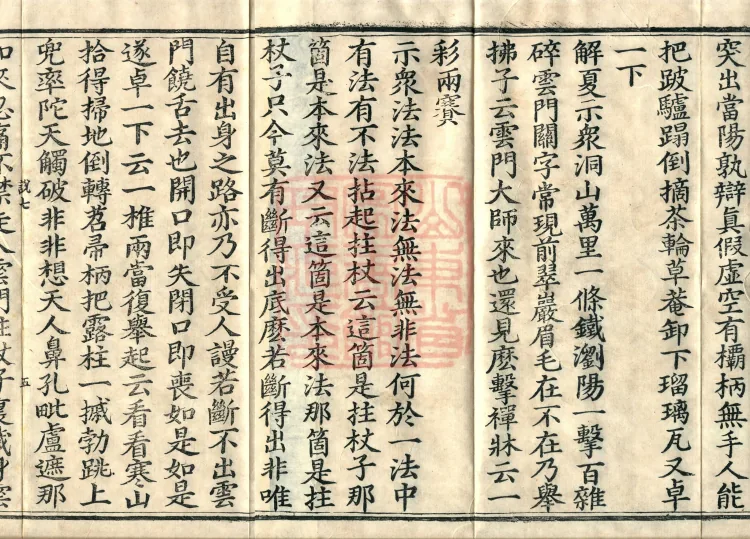 突出當陽孰辯眞假虛空有欛柄無手人能
把跛驢蹋倒摘茶輪草菴卸下瑠璃瓦又卓
一下
解夏示衆洞山萬里一條鐵瀏陽一擊百雜
碎雲門關字常現前翠巖眉毛在不在乃擧
拂子云雲門大師來也還見麽擊禪牀云一
彩兩賽
示衆法法本來法無法無非法何於一法中
有法有不法拈起拄杖云這箇是拄杖子那
箇是本來法又云這箇是本來法那箇是拄
杖子只今莫有斷得出底麽若斷得出非唯
自有出身之路亦乃不受人謾若斷不出雲
門饒舌去也開口即失閉口即喪如是如是
遂卓一下云一椎兩當復擧起云看看寒山
拾得掃地倒轉苕帚柄把露柱一搣勃跳上
兜率陀天觸破非非想天人鼻孔毗盧遮那
説七 五
如來忍痛不禁走入雲門拄杖子裏藏身雲